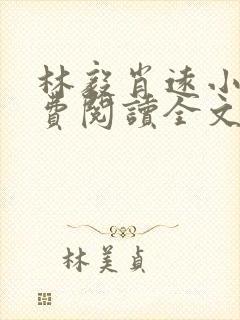 林毅肖遠小
費閱讀全文
林美貞